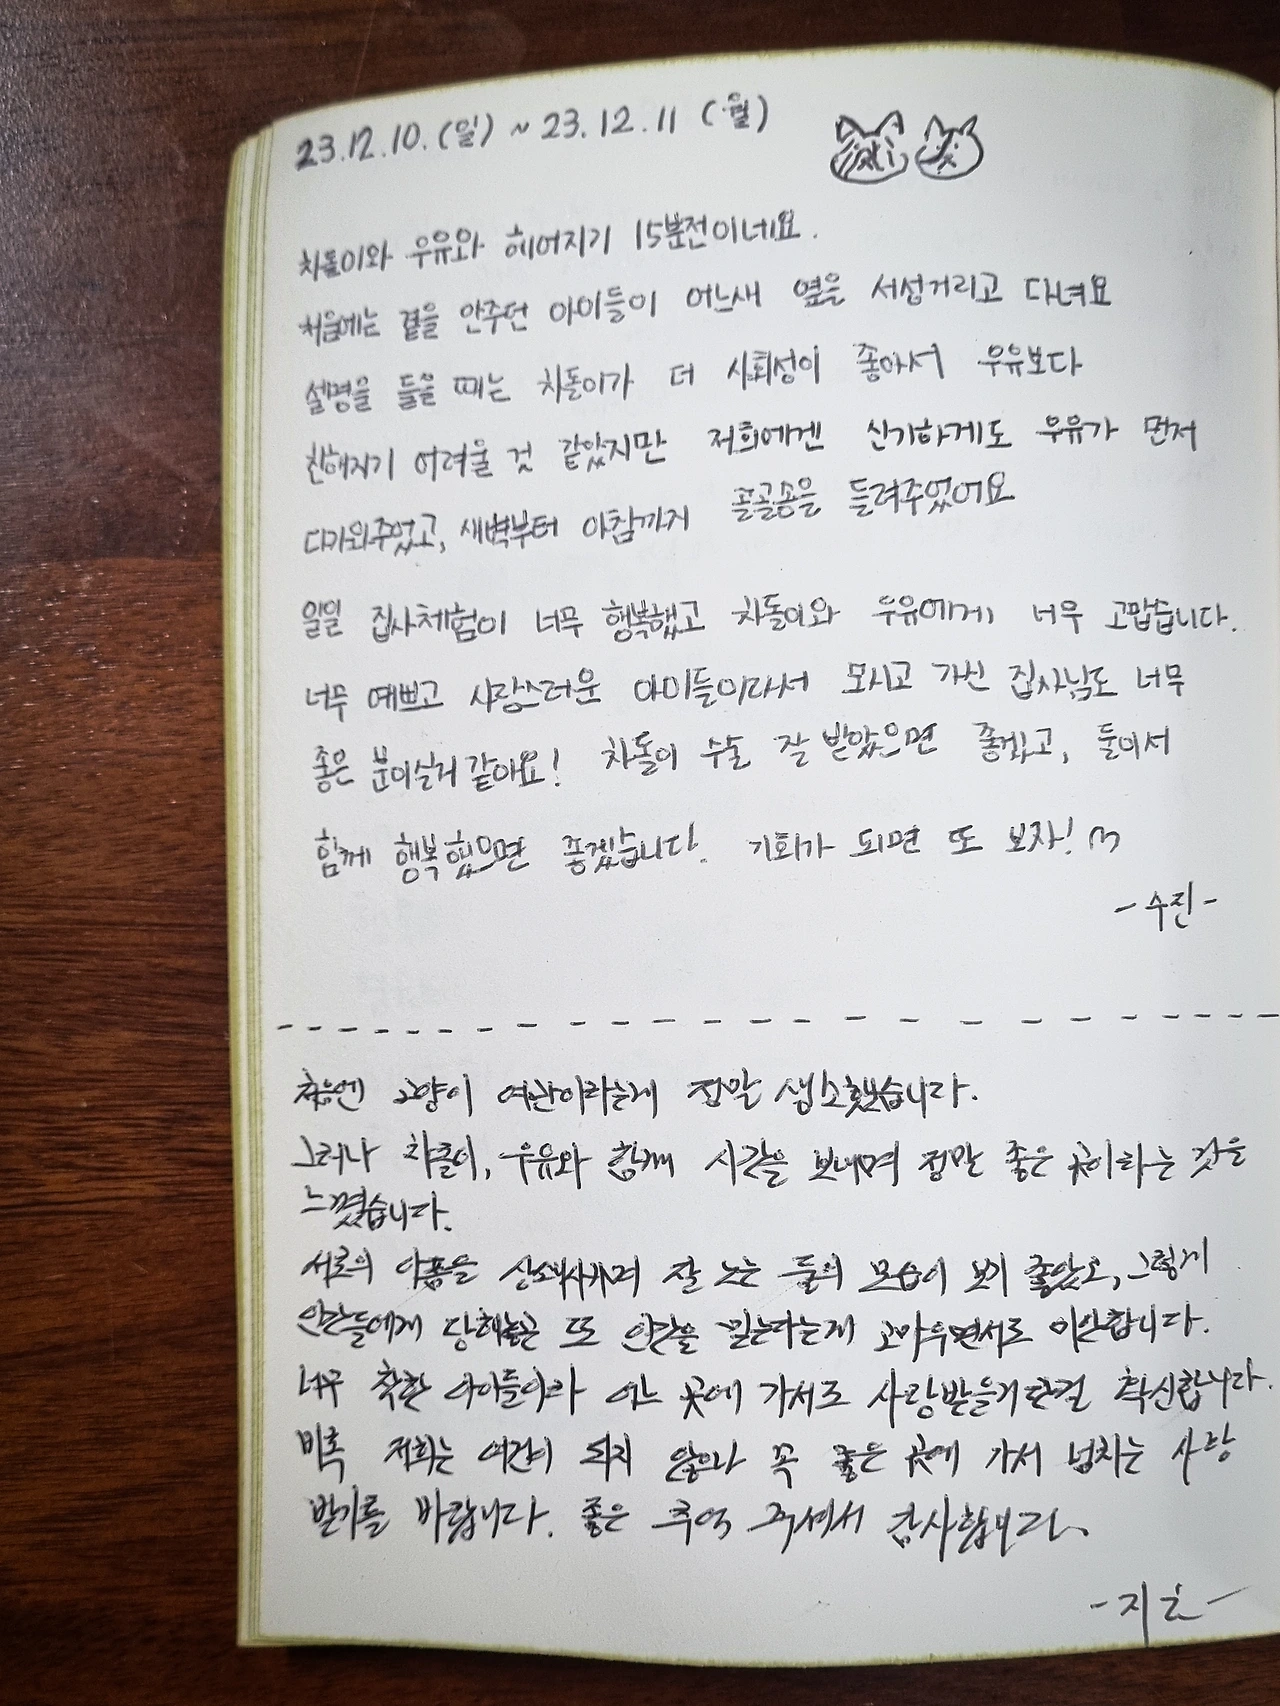 23.12.10.(일) ~ 23.12.11 (월)
차돌이와 우유와 헤어지기 15분전이네요.
처음에는 곁을 안주던 아이들이 어느새 옆을 서성거리고 다녀요
설명을 들을 때는 차돌이가 더 사회성이 좋아서 우유보다
친해지기 어려울 것 같았지만 저희에겐 신기하게도 우유가 먼저
다가와주었고, 새벽부터 아침까지 골골송을 들려주었어요
일일 집사체험이 너무 행복했고 차돌이와 우유에게 너무 고맙습니다.
너무 예쁘고 사랑스러운 아이들이라서 모시고 가신 집사님도 너무
좋은 분이실거 같아요! 차돌이 수술 잘 받았으면 좋겠고, 둘이서
함께 행복했으면 좋겠습니다. 기회가 되면 또 보자! m
- 수진 -
처음엔 고양이 여관이라는게 정말 생소했습니다.
그러나 차돌이, 우유와 함께 시간을 보내며 정말 좋은 곳이라는 것을
느꼈습니다.
서로의 아픔을 상쇄시키며 잘 노는 둘의 모습이 보기 좋았고, 그렇게
인간들에게 당해놓곤 또 인간을 믿는다는게 고마우면서도 미안합니다.
너무 착한 아이들이라 어느 곳에 가서도 사랑받을거란걸 확신합니다.
비록 저희는 여건이 되지 않으나 꼭 좋은 곳에 가서 넘치는 사랑
받기를 바랍니다. 좋은 추억 주셔서 감사합니다.